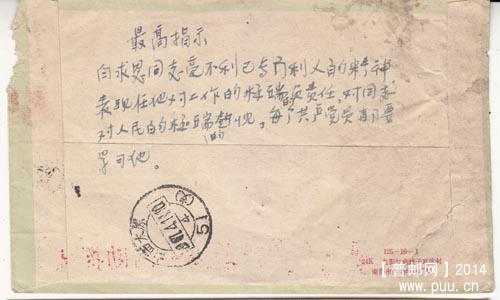 最高指示
白求恩同志毫不利己专门利人的精神
表现在他对工作的极端的负责任,对同志
对人民的极端的热忱,每个共产党员都要
学习他。
51
125-16-1
【普邮网】2014
www.puu.cn